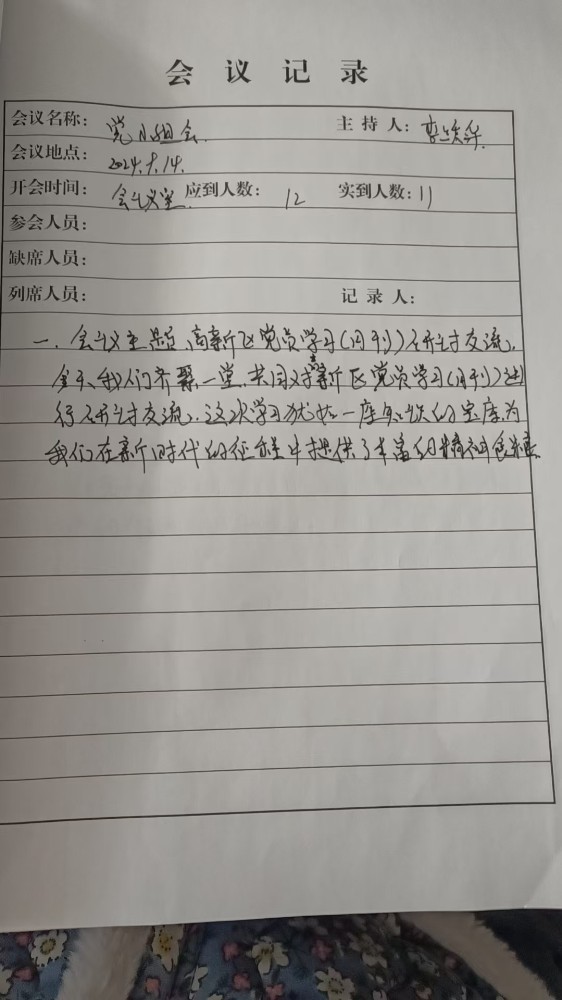 会 议 记 录
会议名称: 党小组会 主 持 人:
会议地点: 2024.9.14.
开会时间: 会议室 应到人数: 12 实到人数: 11
参会人员:
缺席人员:
列席人员: 记 录 人:
一、会议主题、高新区党员学习(月刊)研讨交流。
今天、我们齐聚一堂、共同对高新区党员学习(月刊)进
行研讨交流。这次学习犹如一座知识的宝库为
我们在新时代的征程中提供了丰富的精神食粮